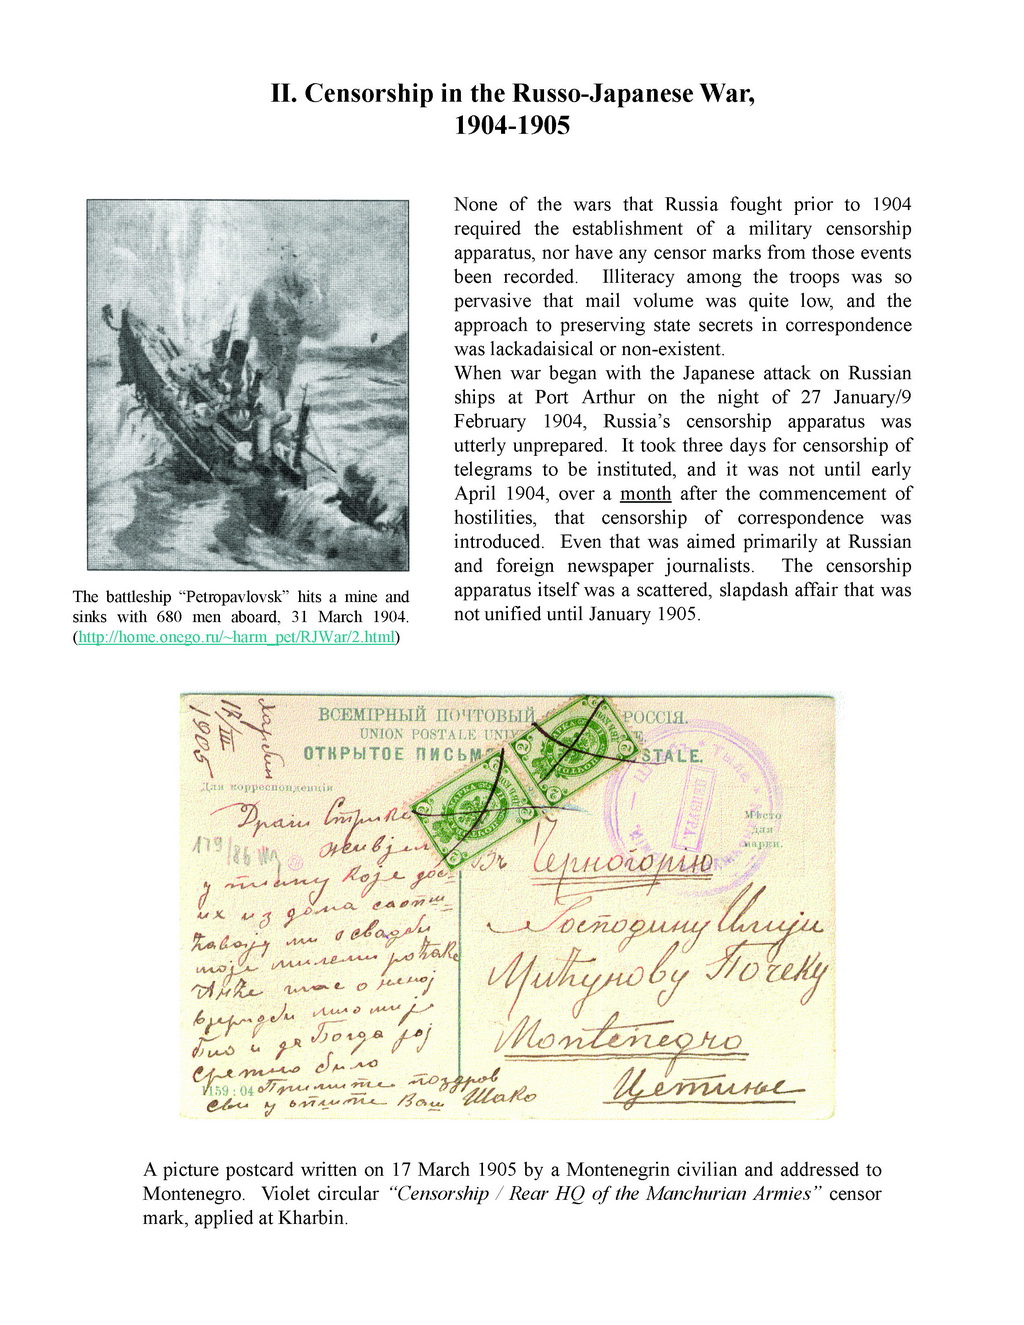 II. Censorship in the Russo-Japanese War,
1904-1905
None of the wars that Russia fought prior to 1904
required the establishment of a military censorship
apparatus, nor have any censor marks from those events
been recorded. Illiteracy among the troops was so
pervasive that mail volume was quite low, and the
approach to preserving state secrets in correspondence
was lackadaisical or non-existent.
When war began with the Japanese attack on Russian
ships at Port Arthur on the night of 27 January/9
February 1904, Russia's censorship apparatus was
utterly unprepared. It took three days for censorship of
telegrams to be instituted, and it was not until early
April 1904, over a month after the commencement of
hostilities, that censorship of correspondence was
introduced. Even that was aimed primarily at Russian
and foreign newspaper journalists. The censorship
apparatus itself was a scattered, slapdash affair that was
not unified until January 1905.
The battleship “Petropavlovsk” hits a mine and
sinks with 680 men aboard, 31 March 1904.
(http://home.onego.ru/~harm_pet/RJWar/2.html)
Харбин
17/III
1905
ВСЕМІРНЫЙ ПОЧТОВЫЙ РОССІЯ.
UNION POSTALE
ОТКРЫТОЕ ПИСЬМ STALE.
Для корреспонденціи
Мѣсто
для
марки.
ЦЕНЗУРА
179/86
Драги
у коje
их из дома
ми о свадби
моjе
о
и да Бог да jоj
сретно било
1159 : 04 поздрав
сви у Ваш Шако
Черногорию
Господину Илиjи
Мићунову
Montenegro
Цетинье
A picture postcard written on 17 March 1905 by a Montenegrin civilian and addressed to
Montenegro. Violet circular “Censorship / Rear HQ of the Manchurian Armies” censor
mark, applied at Kharbin.